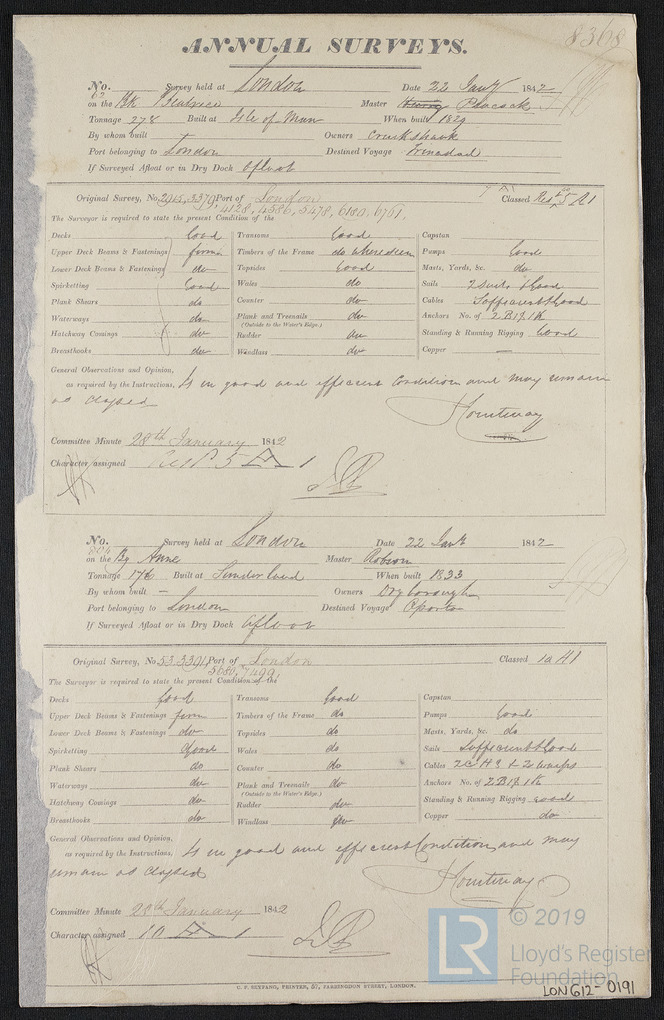 8368
ANNUAL SURVEYS.
No. 62 Survey held at London Date 22 Jany 1842
on the Bk Beatrice Master Peacock
Tonnage 278 Built at Isle of Man When built 1829
By whom built Owners Cruikshank
Port belonging to London Destined Voyage Trinidad
If Surveyed Afloat or in Dry Dock Afloat
Original Survey, No. 2915, 3379 Port of London Classed Resd 5 A1
4128, 4386, 5478, 6180, 6761,
The Surveyor is required to state the present Condition of the
Decks Good Transoms Good Capstan
Upper Deck Beams & Fastenings firm Timbers of the Frame do where seen Pumps Good
Lower Deck Beams & Fastenings do Topsides Good Masts, Yards, &c. do
Spirketting Good Wales do Sails 2 Suits & Good
Plank Shears do Counter do Cables Sufficient & Good
Waterways do Plank and Treenails do Anchors No. of 2B 1S 1K
(Outside to the Water's Edge.)
Hatchway Comings do Rudder do Standing & Running Rigging Good
Breasthooks do Windlass do Copper —
General Observations and Opinion,
as required by the Instructions, Is in good and efficient Condition and may remain
as classed
Courtenay
Committee Minute 28th January 1842
Character assigned Resd 5 A 1
No. Survey held at London Date 22 Jany 1842
on the Bg Anne Master Robson
Tonnage 176 Built at Sunderland When built 1833
By whom built – Owners Dryborough
Port belonging to London Destined Voyage Oporto
If Surveyed Afloat or in Dry Dock Afloat
Original Survey, No. 53, 3391, Port of London Classed 10 A1
5680, 7499,
The Surveyor is required to state the present Condition of the
Decks Good Transoms Good Capstan
Upper Deck Beams & Fastenings firm Timbers of the Frame do Pumps Good
Lower Deck Beams & Fastenings do Topsides do Masts, Yards, &c. do
Spirketting Good Wales do Sails Sufficient & Good
Plank Shears do Counter do Cables 2 & 2 Warps
Waterways do Plank and Treenails do Anchors No. of 2B 1S 1K
(Outside to the Water's Edge.)
Hatchway Comings do Rudder do Standing & Running Rigging good
Breasthooks do Windlass do Copper do
General Observations and Opinion,
as required by the Instructions, Is in good and efficient Condition, and may
remain as classed
Courtenay
Committee Minute 28th January 1842
Character assigned 10 A 1
C. F. SEYFANG, PRINTER, 57, FARRINGDON STREET, LONDON.
LR © 2019
Lloyd's Register
Foundation
LON612-0191